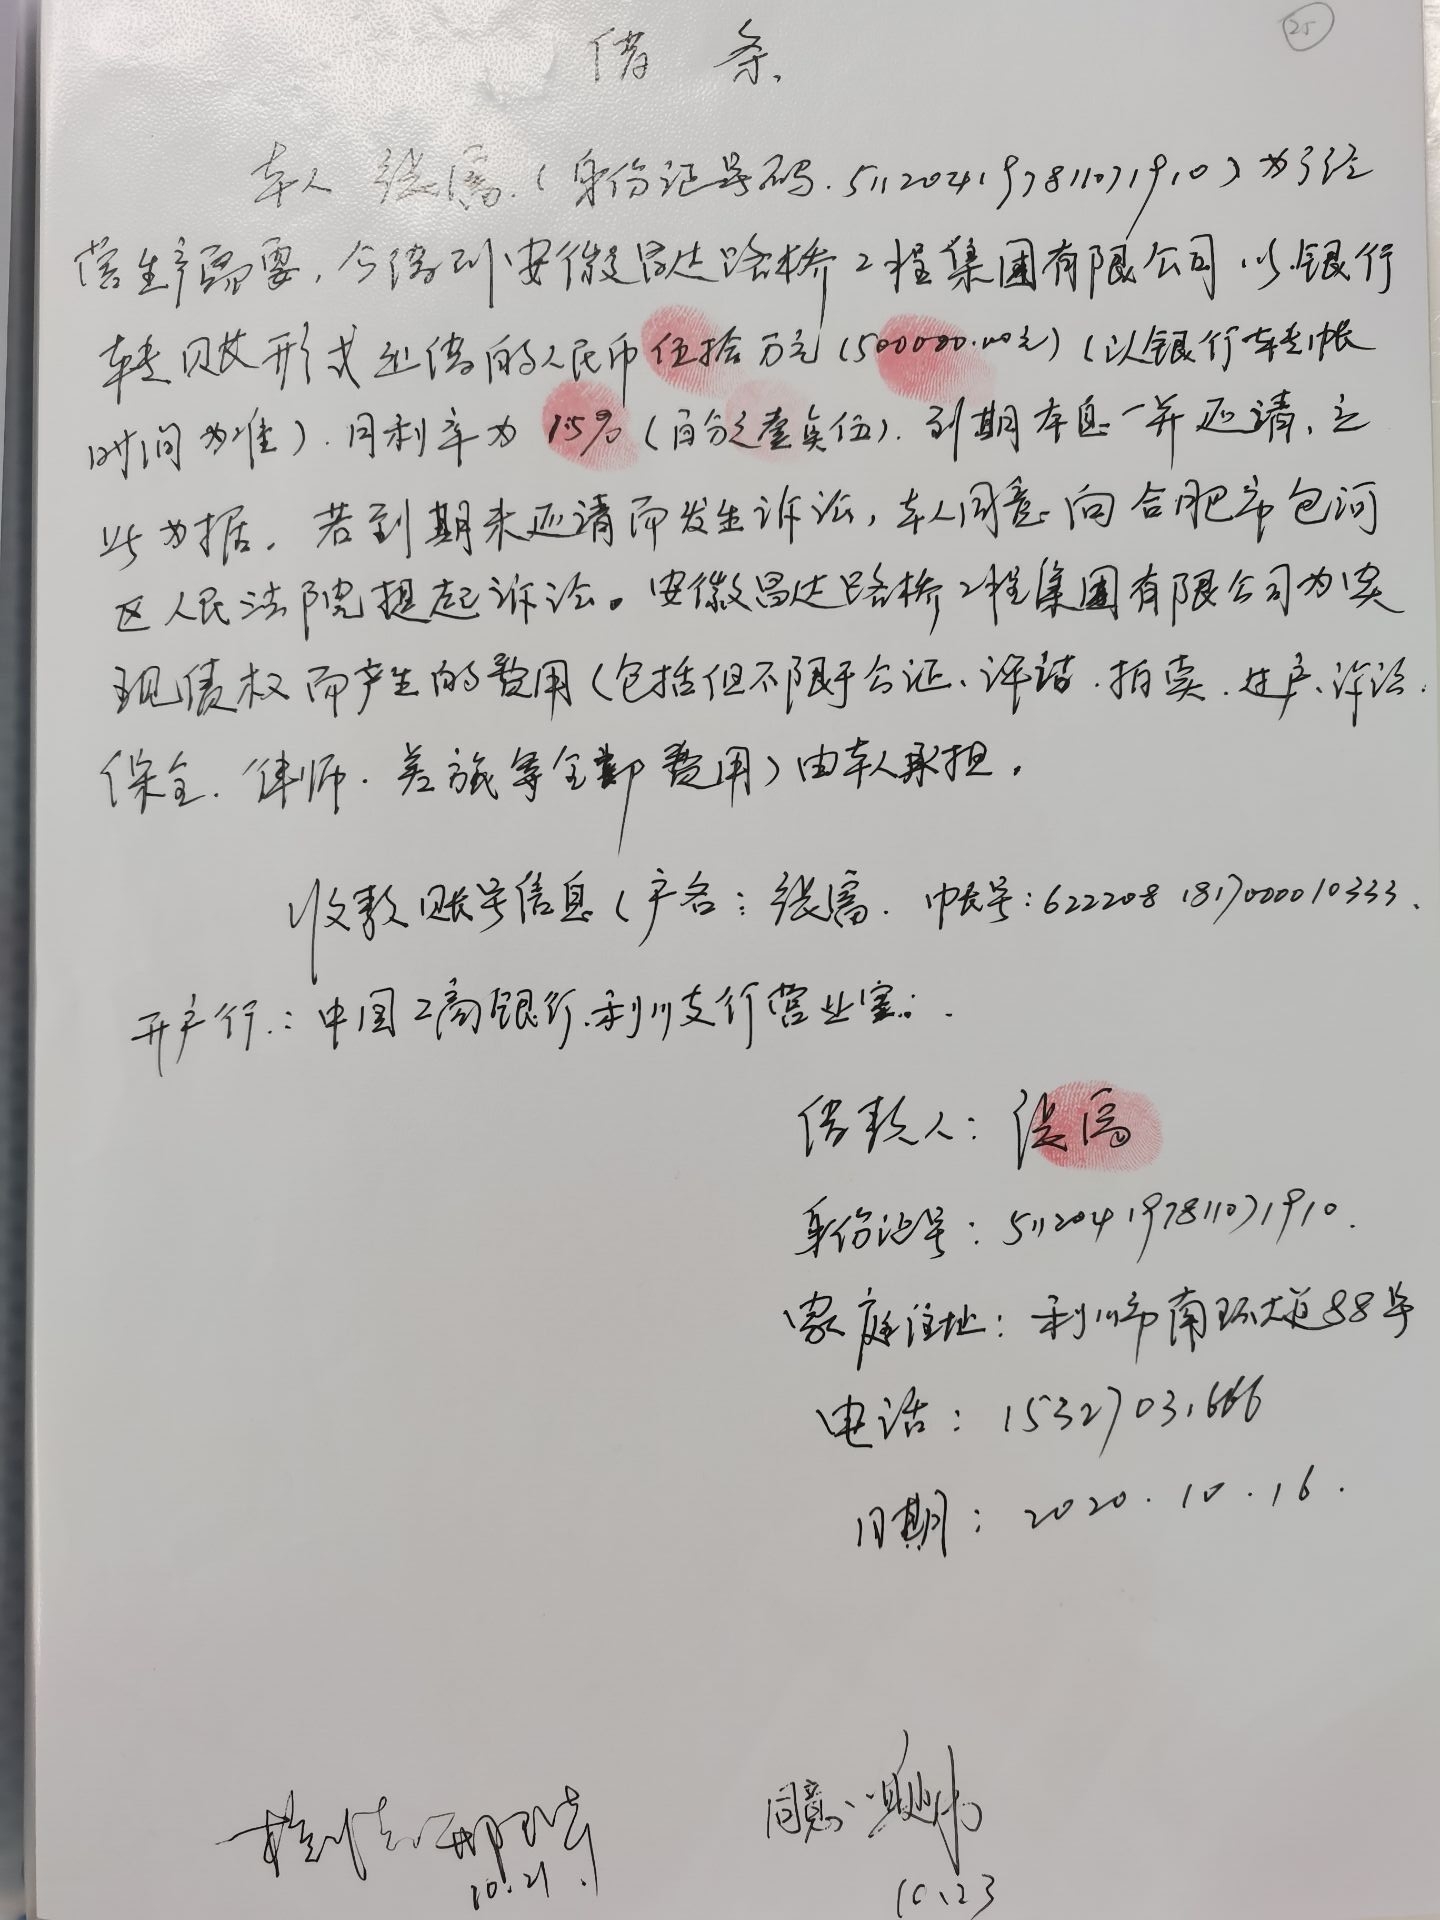 25
借 条
本人 张富.(身份证号码.511204197811071910)为了经
营生产需要,今借到安徽昌达路桥工程集团有限公司以银行
转账形式出借的人民币伍拾万元(500000.00元)(以银行转帐
时间为准).月利率为1.5%(百分之壹点伍).到期本息一并还清,立
此为据。若到期未还清而发生诉讼,本人同意向合肥市包河
区人民法院提起诉讼。安徽昌达路桥工程集团有限公司为实
现债权而产生的费用(包括但不限于公证、评估.拍卖.过户、诉讼.
保全.律师.差旅等全部费用)由本人承担。
收款账号信息(户名:张富. 帐号:6222081817000010333.
开户行:中国工商银行利川支行营业室.
借款人:张富
身份证号:511204197811071910.
家庭住址:利川市南环大道88号
电话:15327031666
日期:2020.10.16.
同意
10.21. 10.23